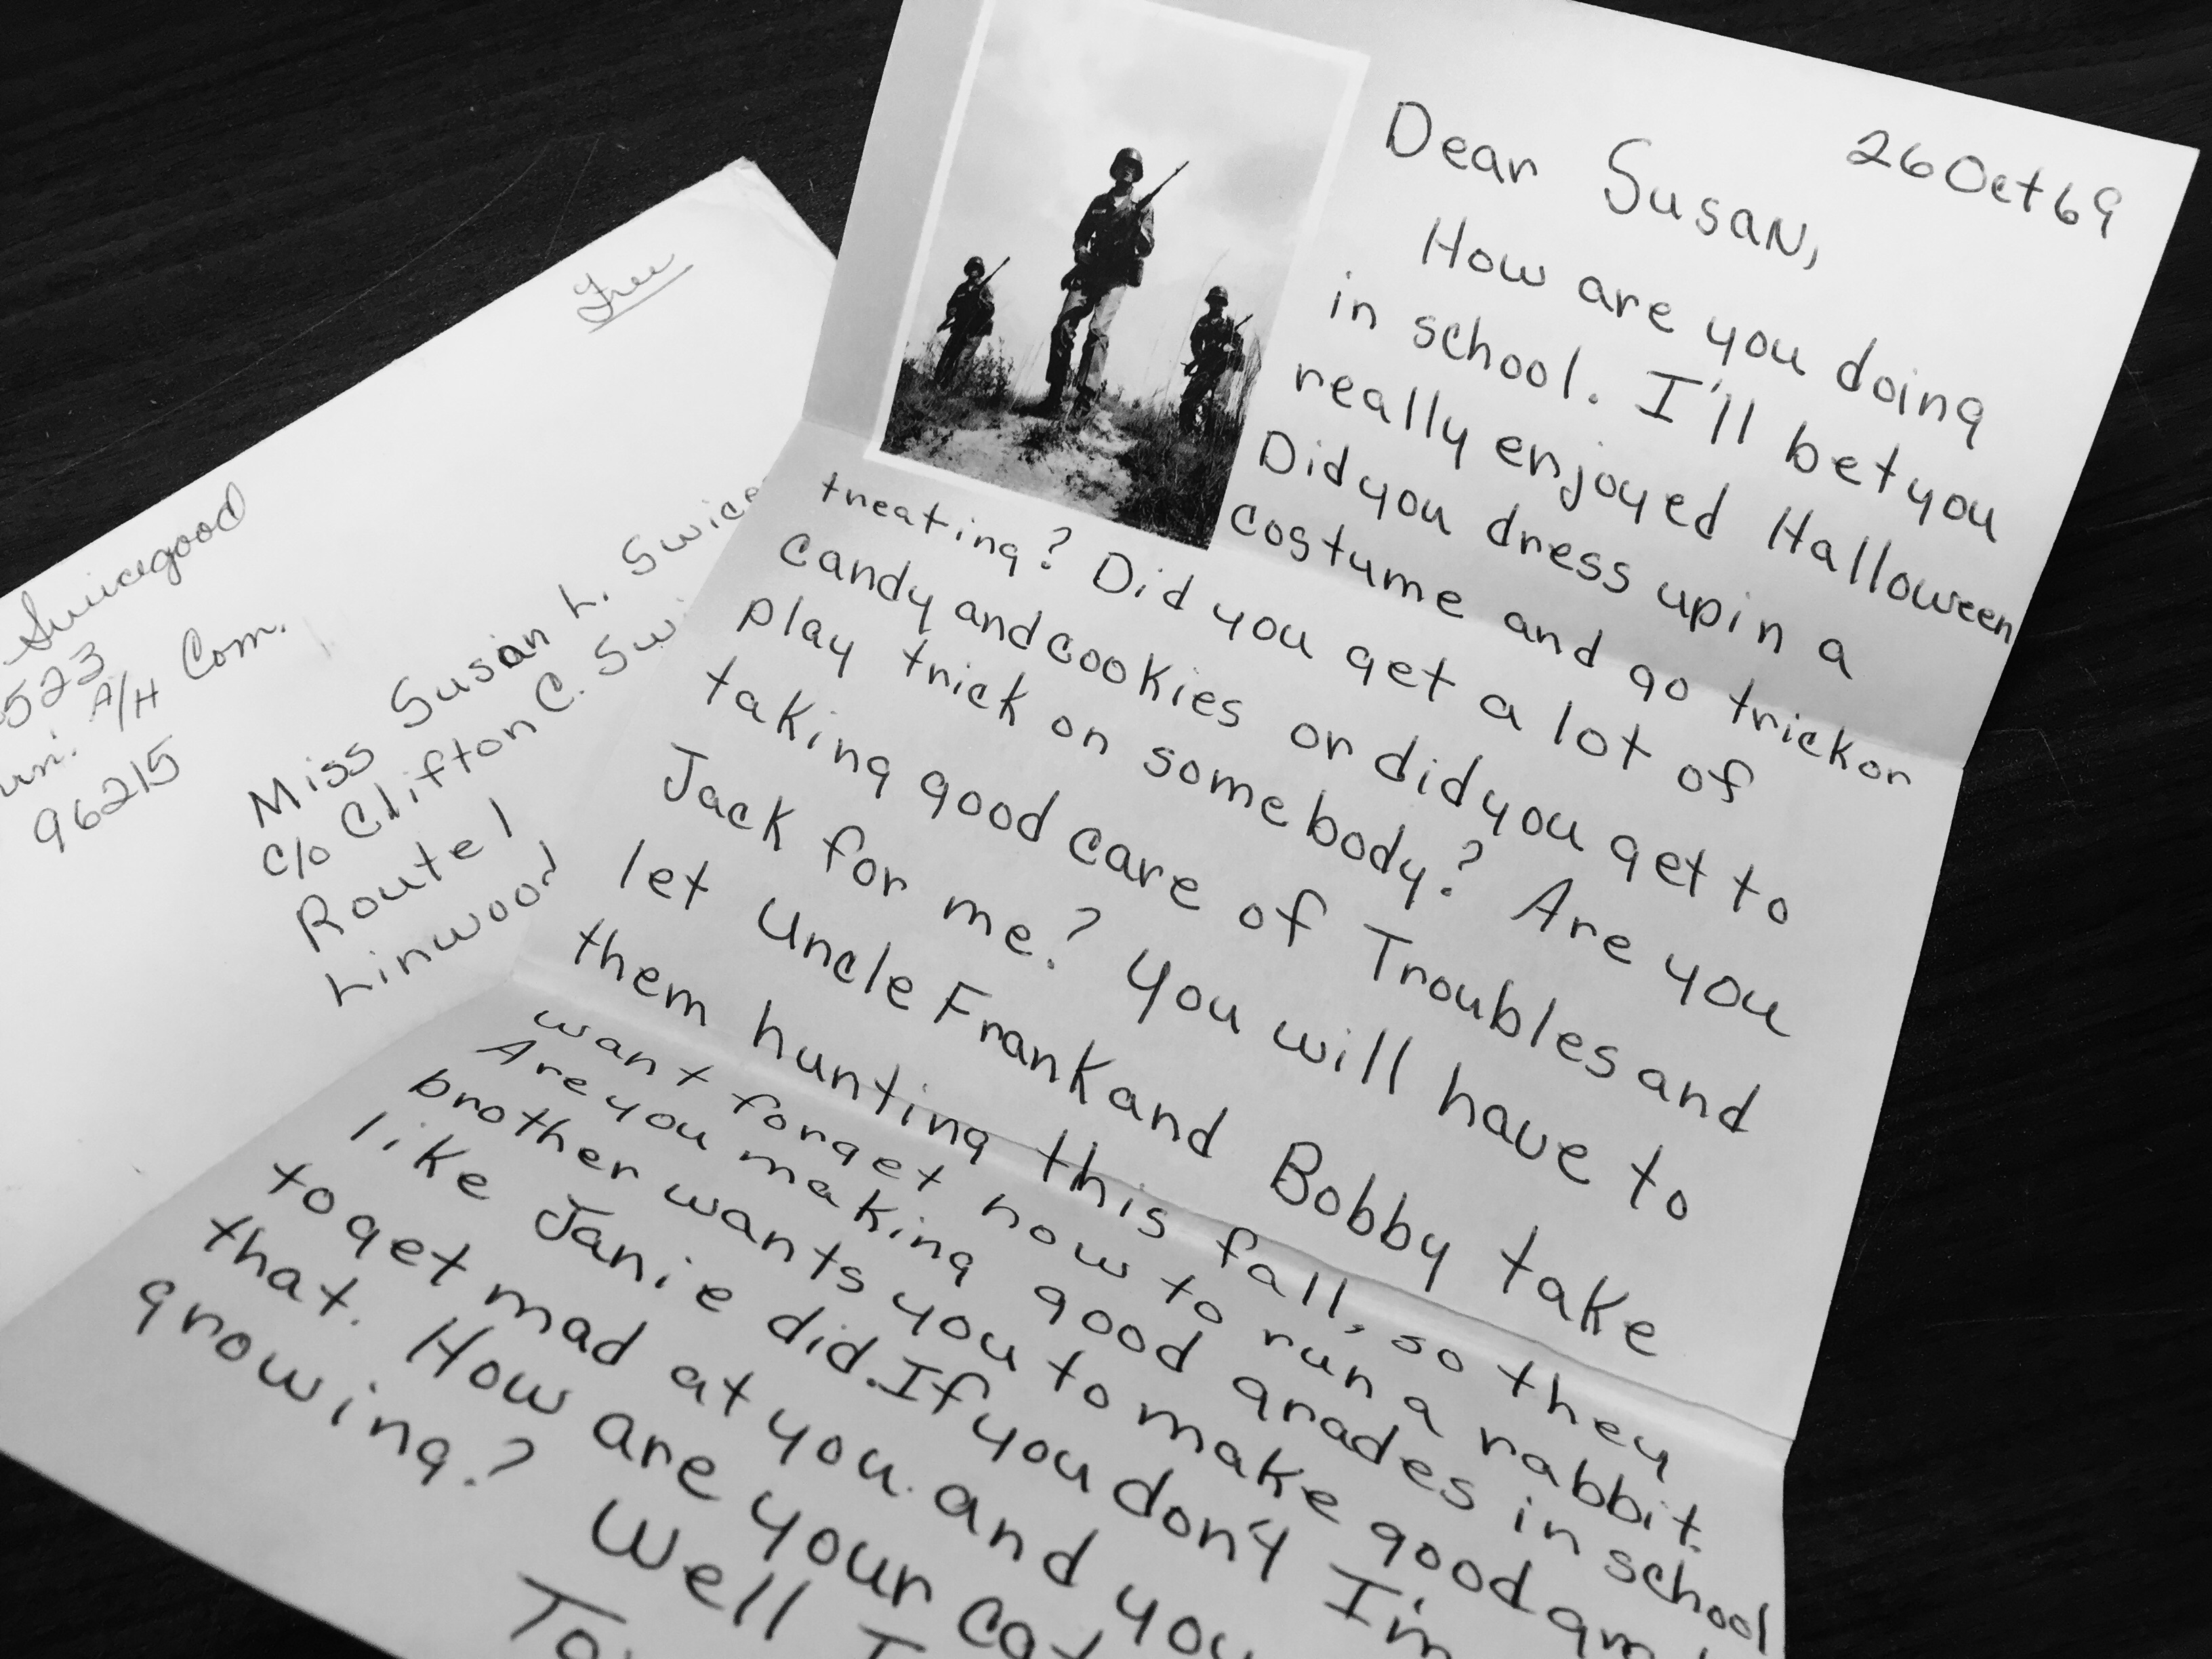 Free
Swicegood
523
A/H Com.
96215
Miss Susan L.
c/o Clifton C.
Route 1
Linwood
26 Oct 69
Dear Susan,
How are you doing
in school. I'll bet you
really enjoyed Halloween
Did you dress up in a
costume and go trick or
treating? Did you get a lot of
candy and cookies or did you get to
play trick on somebody? Are you
taking good care of Troubles and
Jack for me? You will have to
let Uncle Frank and Bobby take
them hunting this fall, so they
want forget how to run a rabbit.
Are you making good grades in school
brother wants you to make good
like Janie did. If you don't I'm
to get mad at you. and you
that. How are your
growing? Well I